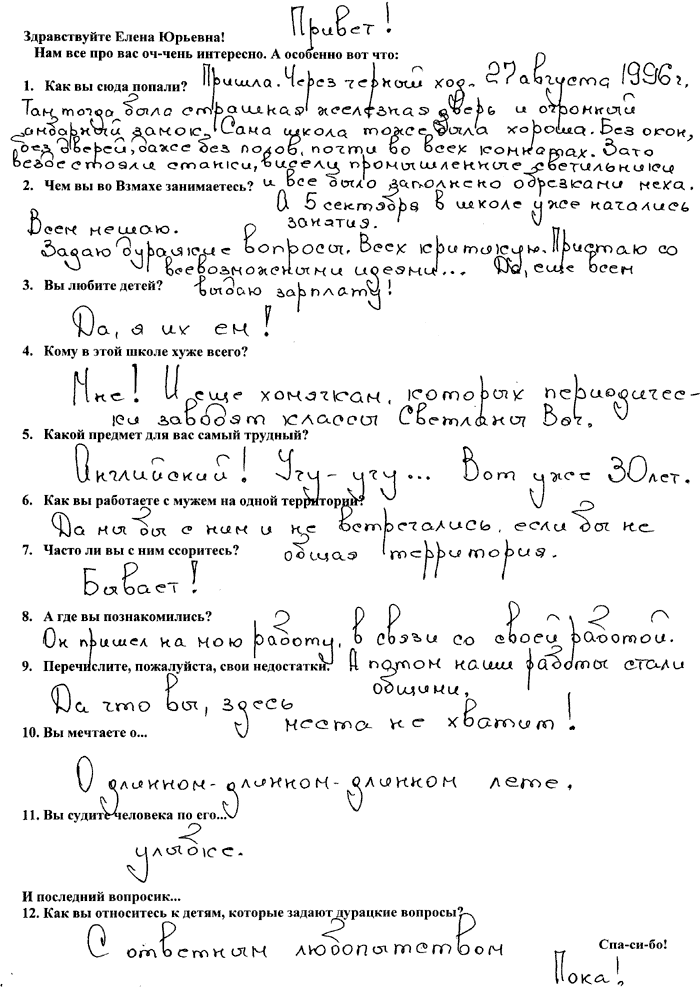 Привет!
Здравствуйте Елена Юрьевна!
Нам все про вас оч-чень интересно. А особенно вот что:
1. Как вы сюда попали? Пришла. Через черный ход. 27 августа 1996 г.
Там тогда была страшная железная дверь и огромный
амбарный замок. Сама школа тоже была хороша. Без окон,
без дверей, даже без полов, почти во всех комнатах. Зато
везде стояли станки, висели промышленные светильники
2. Чем вы во Взмахе занимаетесь? и все было заполнено обрезками меха.
А 5 сентября в школе уже начались
занятия.
Всем мешаю.
Задаю дурацкие вопросы. Всех критикую. Пристаю со
всевозможными идеями... Да, еще всем
3. Вы любите детей? выдаю зарплату!
Да, я их ем!
4. Кому в этой школе хуже всего?
Мне! И еще хомячкам, которых периодичес-
ки заводят классы Светланы Вяч.
5. Какой предмет для вас самый трудный?
Английский! Учу-учу... Вот уже 30 лет.
6. Как вы работаете с мужем на одной территории?
Да мы бы с ним и не встречались, если бы не
7. Часто ли вы с ним ссоритесь? общая территория.
Бывает!
8. А где вы познакомились?
Он пришел на мою работу, в связи со своей работой.
9. Перечислите, пожалуйста, свои недостатки. А потом наши работы стали
общими.
Да что вы, здесь
места не хватит!
10. Вы мечтаете о...
О длинном-длинном-длинном лете.
11. Вы судите человека по его...
улыбке.
И последний вопросик...
12. Как вы относитесь к детям, которые задают дурацкие вопросы?
С ответным любопытством
Спа-си-бо!
Пока!